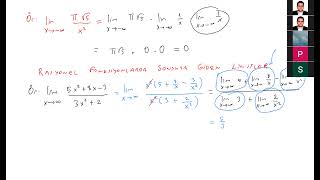 Ör: lim x→-∞ π√3/x² = lim x→-∞ π√3 · lim x→-∞ 1/x · lim x→-∞ 1/x
= π√3 · 0 · 0 = 0
Rasyonel Fonksiyonlarda Sonsuza Giden Limitler
Ör: lim x→∞ (5x²+8x-3)/(3x²+2) = lim x→∞ x²(5+8/x-3/x²)/x²(3+2/x²) = lim x→∞ 5 + lim x→∞ 8/x
lim x→∞ 3 + lim x→∞ 2/x²
= 5/3
P
S